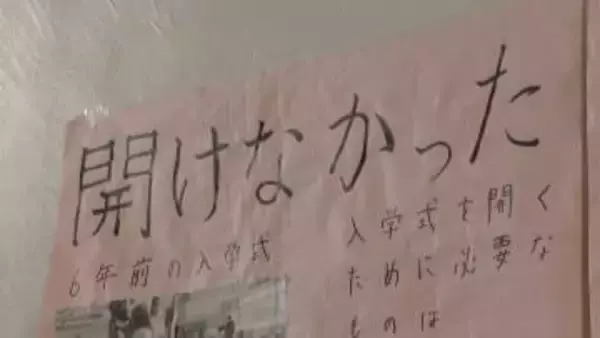 開けなかった
6年前の入学式
入学式を開く
ために必要な
ものは